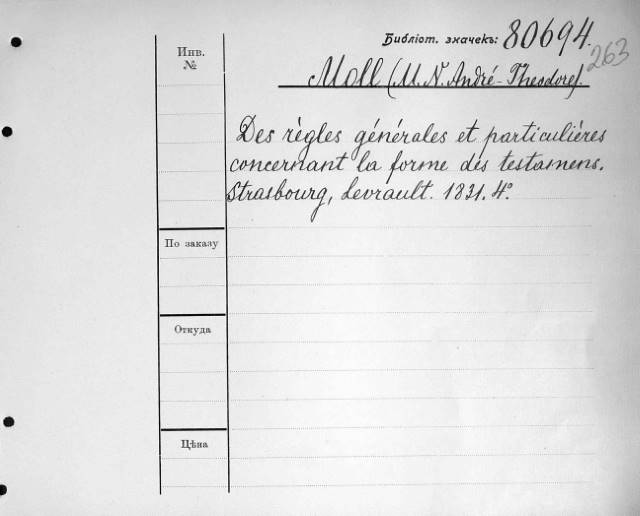 Библіот. значекъ: 80694.
263
Инв.
№
Moll (M. N. André-Theodore).
Des règles générales et particulières
concernant la forme des testamens.
Strasbourg, Levrault. 1831. 4º.
По заказу
Откуда
Цѣна